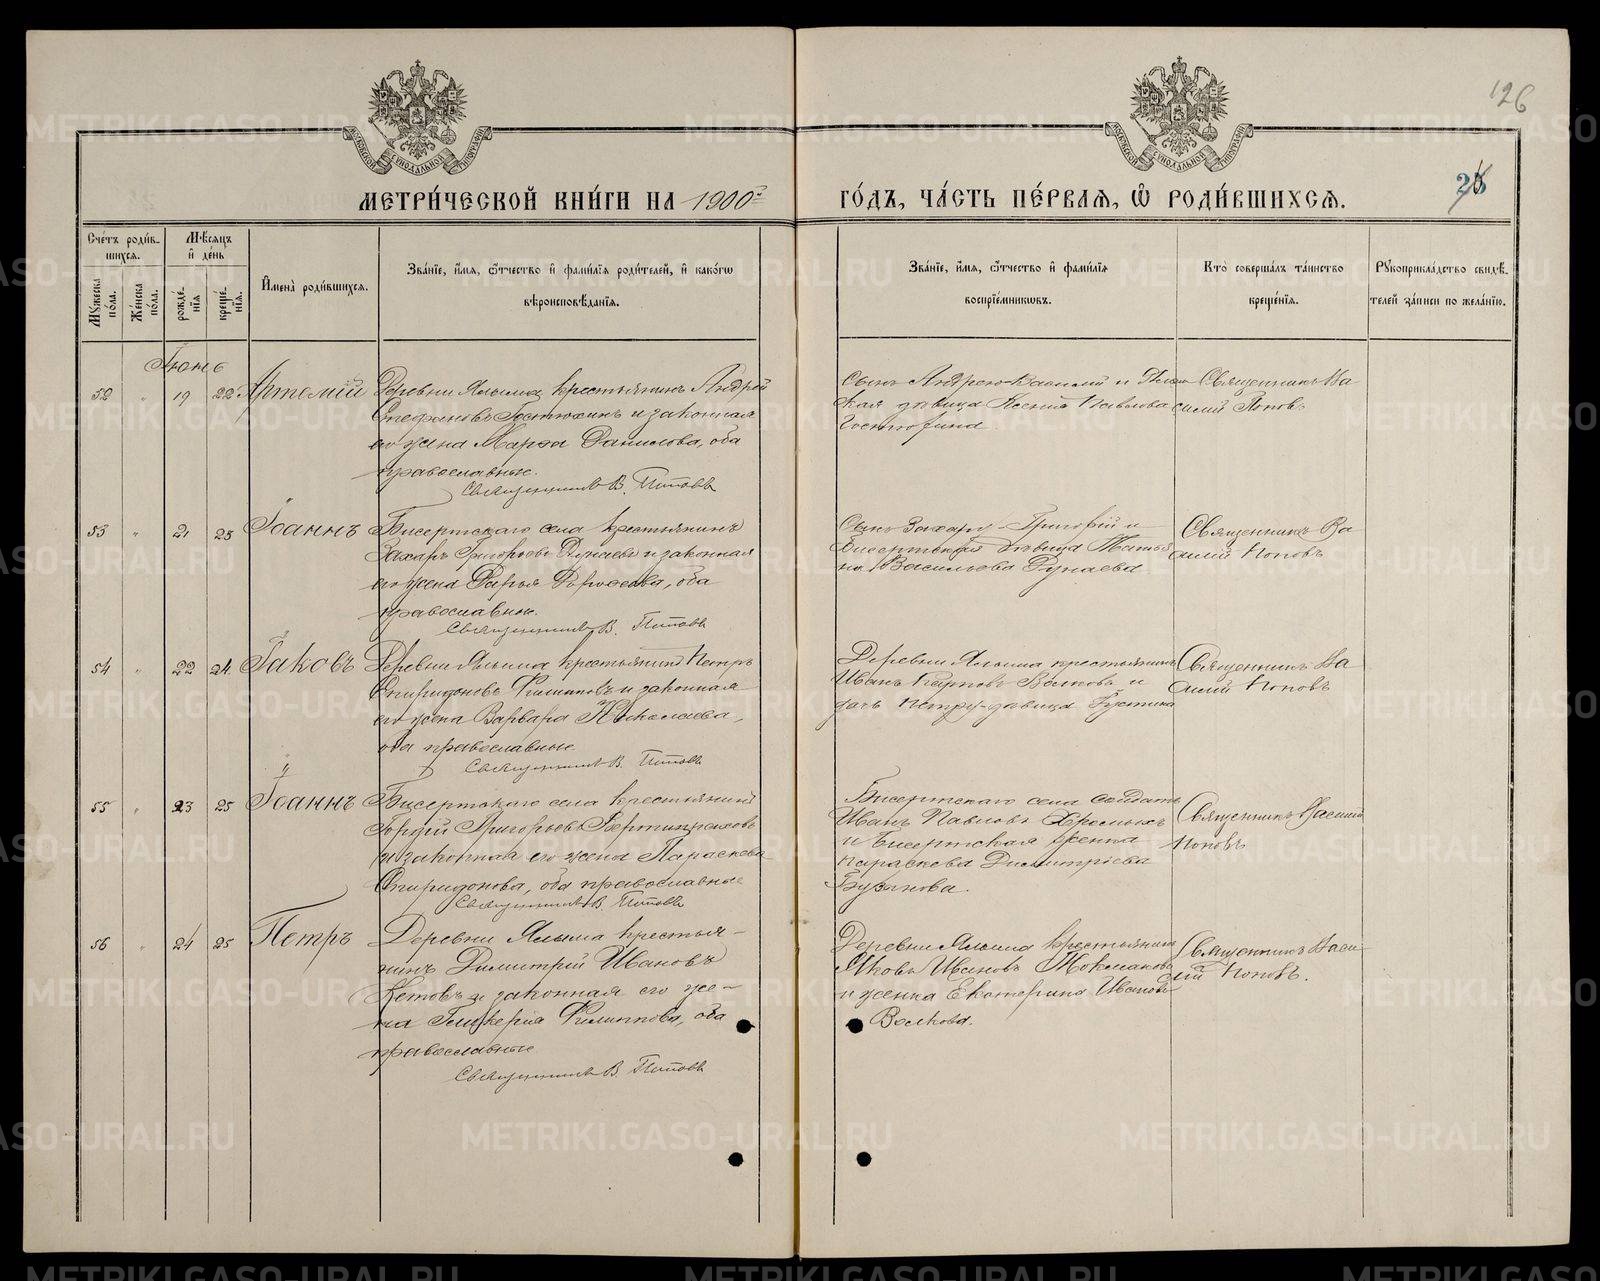 126
25
МЕТРИ́ЧЕСКОЙ КНИ́ГИ НА 1900 г.
ГО́ДЪ, ЧА́СТЬ ПЕ́РВАѦ, Ѡ҆ РОДИ́ВШИХСѦ.
Сче́тъ роди́вшихсѧ.
Мꙋ́жеска по́ла.
Же́нска по́ла.
Мѣ́сѧцъ и҆ де́нь
рожде́нїѧ
креще́нїѧ.
И҆мена̀ роди́вшихсѧ.
Зва́нїе, и҆́мѧ, ѻ҆́тчество и҆ фами́лїѧ роди́телей, и҆ како́гѡ
вѣроисповѣ́данїѧ.
Зва́нїе, и҆́мѧ, ѻ҆́тчество и҆ фами́лїѧ
воспрїе́мникѡвъ.
Кто̀ соверша́лъ та́инство
креще́нїѧ.
Рꙋкоприкла́дство свидѣ́телей за́писи по жела́нїю.
Іюнь
52 " 19 22 Артемій
Деревни Ялыма крестьянинъ Андрей
Стефановъ Гостюхинъ и законная
его жена Марѳа Данилова, оба
православные.
Священникъ В. Поповъ
Сынъ Андрея Василій и
дѣвица Ксенія Павлова
Гостюхина
Священникъ Василій Поповъ
53 " 21 25 Іоаннъ
Бисертскаго села крестьянинъ
Захаръ Григорьевъ Дунаевъ и законная
его жена Дарья, оба
православные.
Священникъ В. Поповъ
Сынъ Захара Григорій и
Бисертская дѣвица Татьяна Васильева Дунаева
Священникъ Василій Поповъ
54 " 22 24 Іаковъ
Деревни Ялыма крестьянинъ Петръ
Спиридоновъ Филиповъ и законная
его жена Варвара Николаева,
оба православные
Священникъ В. Поповъ
Деревни Ялыма крестьянинъ
Иванъ Карповъ Волковъ и
дочь Петра дѣвица Густина
Священникъ Василій Поповъ
55 " 23 25 Іоаннъ
Бисертскаго села крестьянинъ
Гордій Григорьевъ
и законная его жена Параскева
Спиридонова, оба православные
Священникъ В. Поповъ
Бисертскаго села солдатъ
Иванъ Павловъ Хромыхъ
и Бисертская женка
Параскева Димитріева
Бузанова.
Священникъ Василій
Поповъ
56 " 24 25 Петръ
Деревни Ялыма крестьянинъ Димитрій Ивановъ
Кетовъ и законная его жена Гликерія Филиппова, оба
православные
Священникъ В. Поповъ
Деревни Ялыма крестьянинъ
Яковъ Ивановъ Токмаковъ
и женка Екатерина Иванова
Волкова.
Священникъ Василій Поповъ.